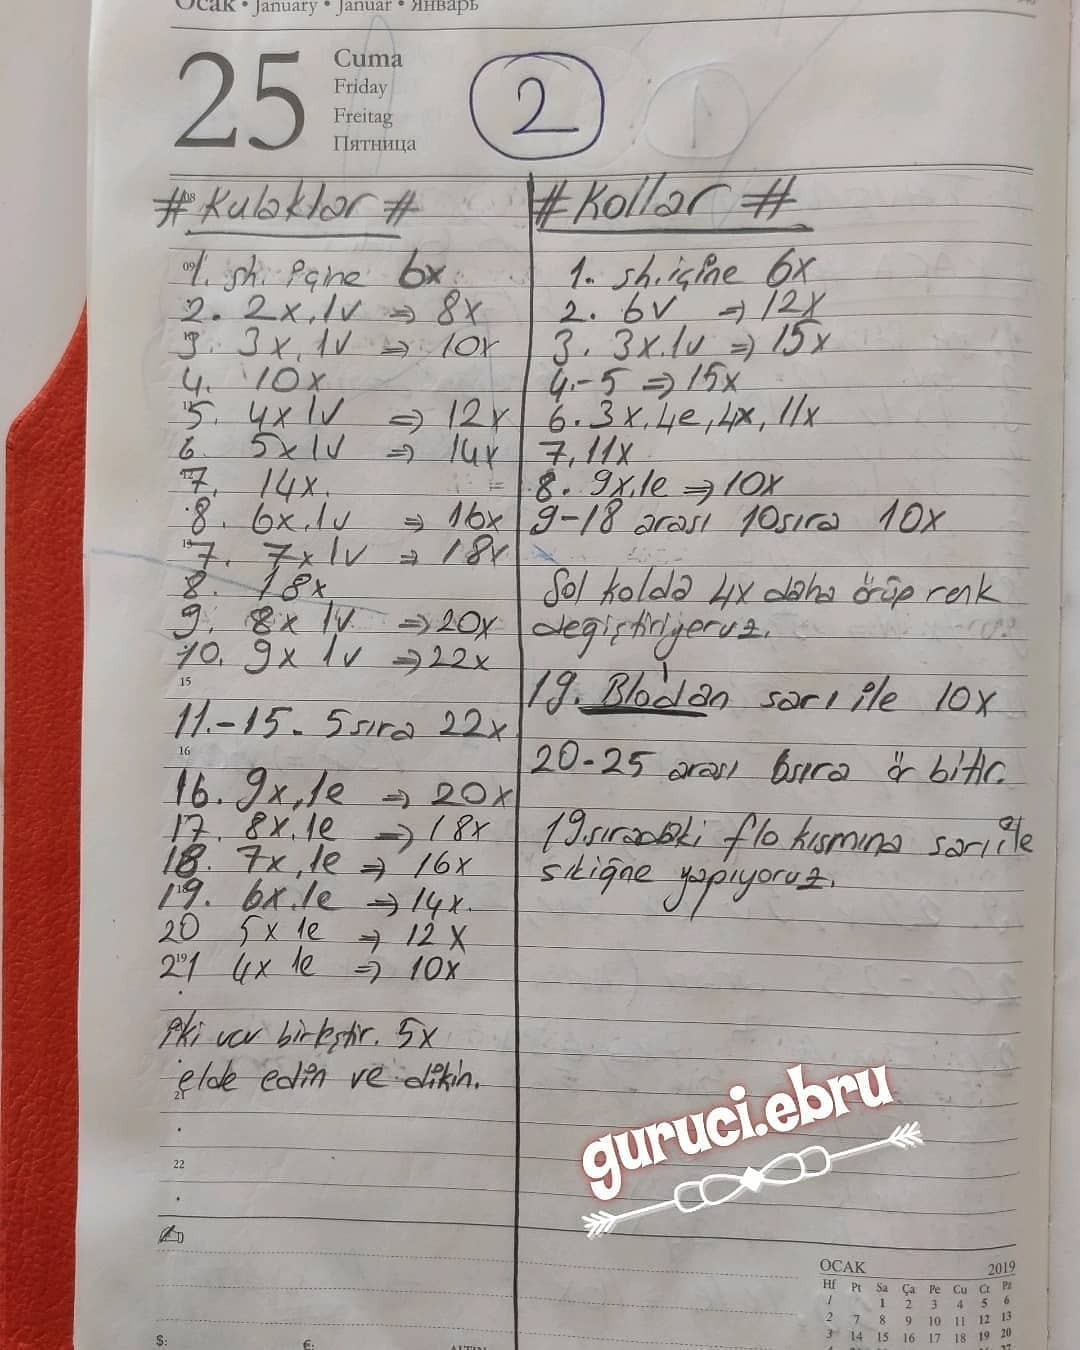 Ocak • January • Januar • Январь
25
Cuma
Friday
Freitag
Пятница
2
1
# Kulaklar #
1. sh. içine 6x
2. 2x, 1v => 8x
3. 3x, 1v => 10x
4. 10x
5. 4x 1v => 12x
6. 5x 1v => 14x
7. 14x.
8. 6x, 1v => 16x
7. 7x 1v => 18x
8. 18x
9. 8x 1v => 20x
10. 9x 1v => 22x
11.-15. 5 sıra 22x
16. 9x, 1e => 20x
17. 8x, 1e => 18x
18. 7x, 1e => 16x
19. 6x, 1e => 14x.
20 5x 1e => 12x
21 4x 1e => 10x
iki var birleştir. 5x
elde edin ve dikin.
# Kollar #
1. sh. içine 6x
2. 6v => 12x
3. 3x, 1v => 15x
4.-5 => 15x
6. 3x, 4e, 4x, 11x
7, 11x
8. 9x, 1e => 10x
9-18 arası 10sıra 10x
Sol kolda 4x daha örüp renk
değiştiriyoruz.
19. Blodan sarı ile 10x
20-25 arası 6sıra ör bitir.
19.sıradaki flo kısmına sarı ile
sıkiğne yapıyoruz.
guruci.ebru
15
16
21
22
OCAK 2019
Hf Pt Sa Ça Pe Cu Ct Pz
1 1 2 3 4 5 6
2 7 8 9 10 11 12 13
3 14 15 16 17 18 19 20
$: €: